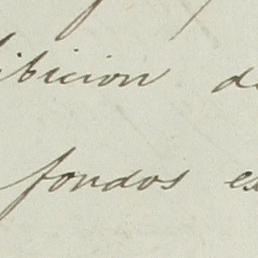 ibicion d
fondos es